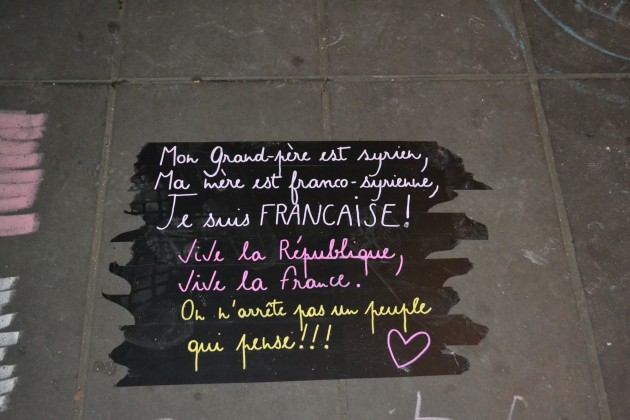 Mon Grand-père est syrien,
Ma mère est franco-syrienne,
Je suis FRANCAISE!
Vive la République,
Vive la france.
On n'arrête pas un peuple
qui pense!!!